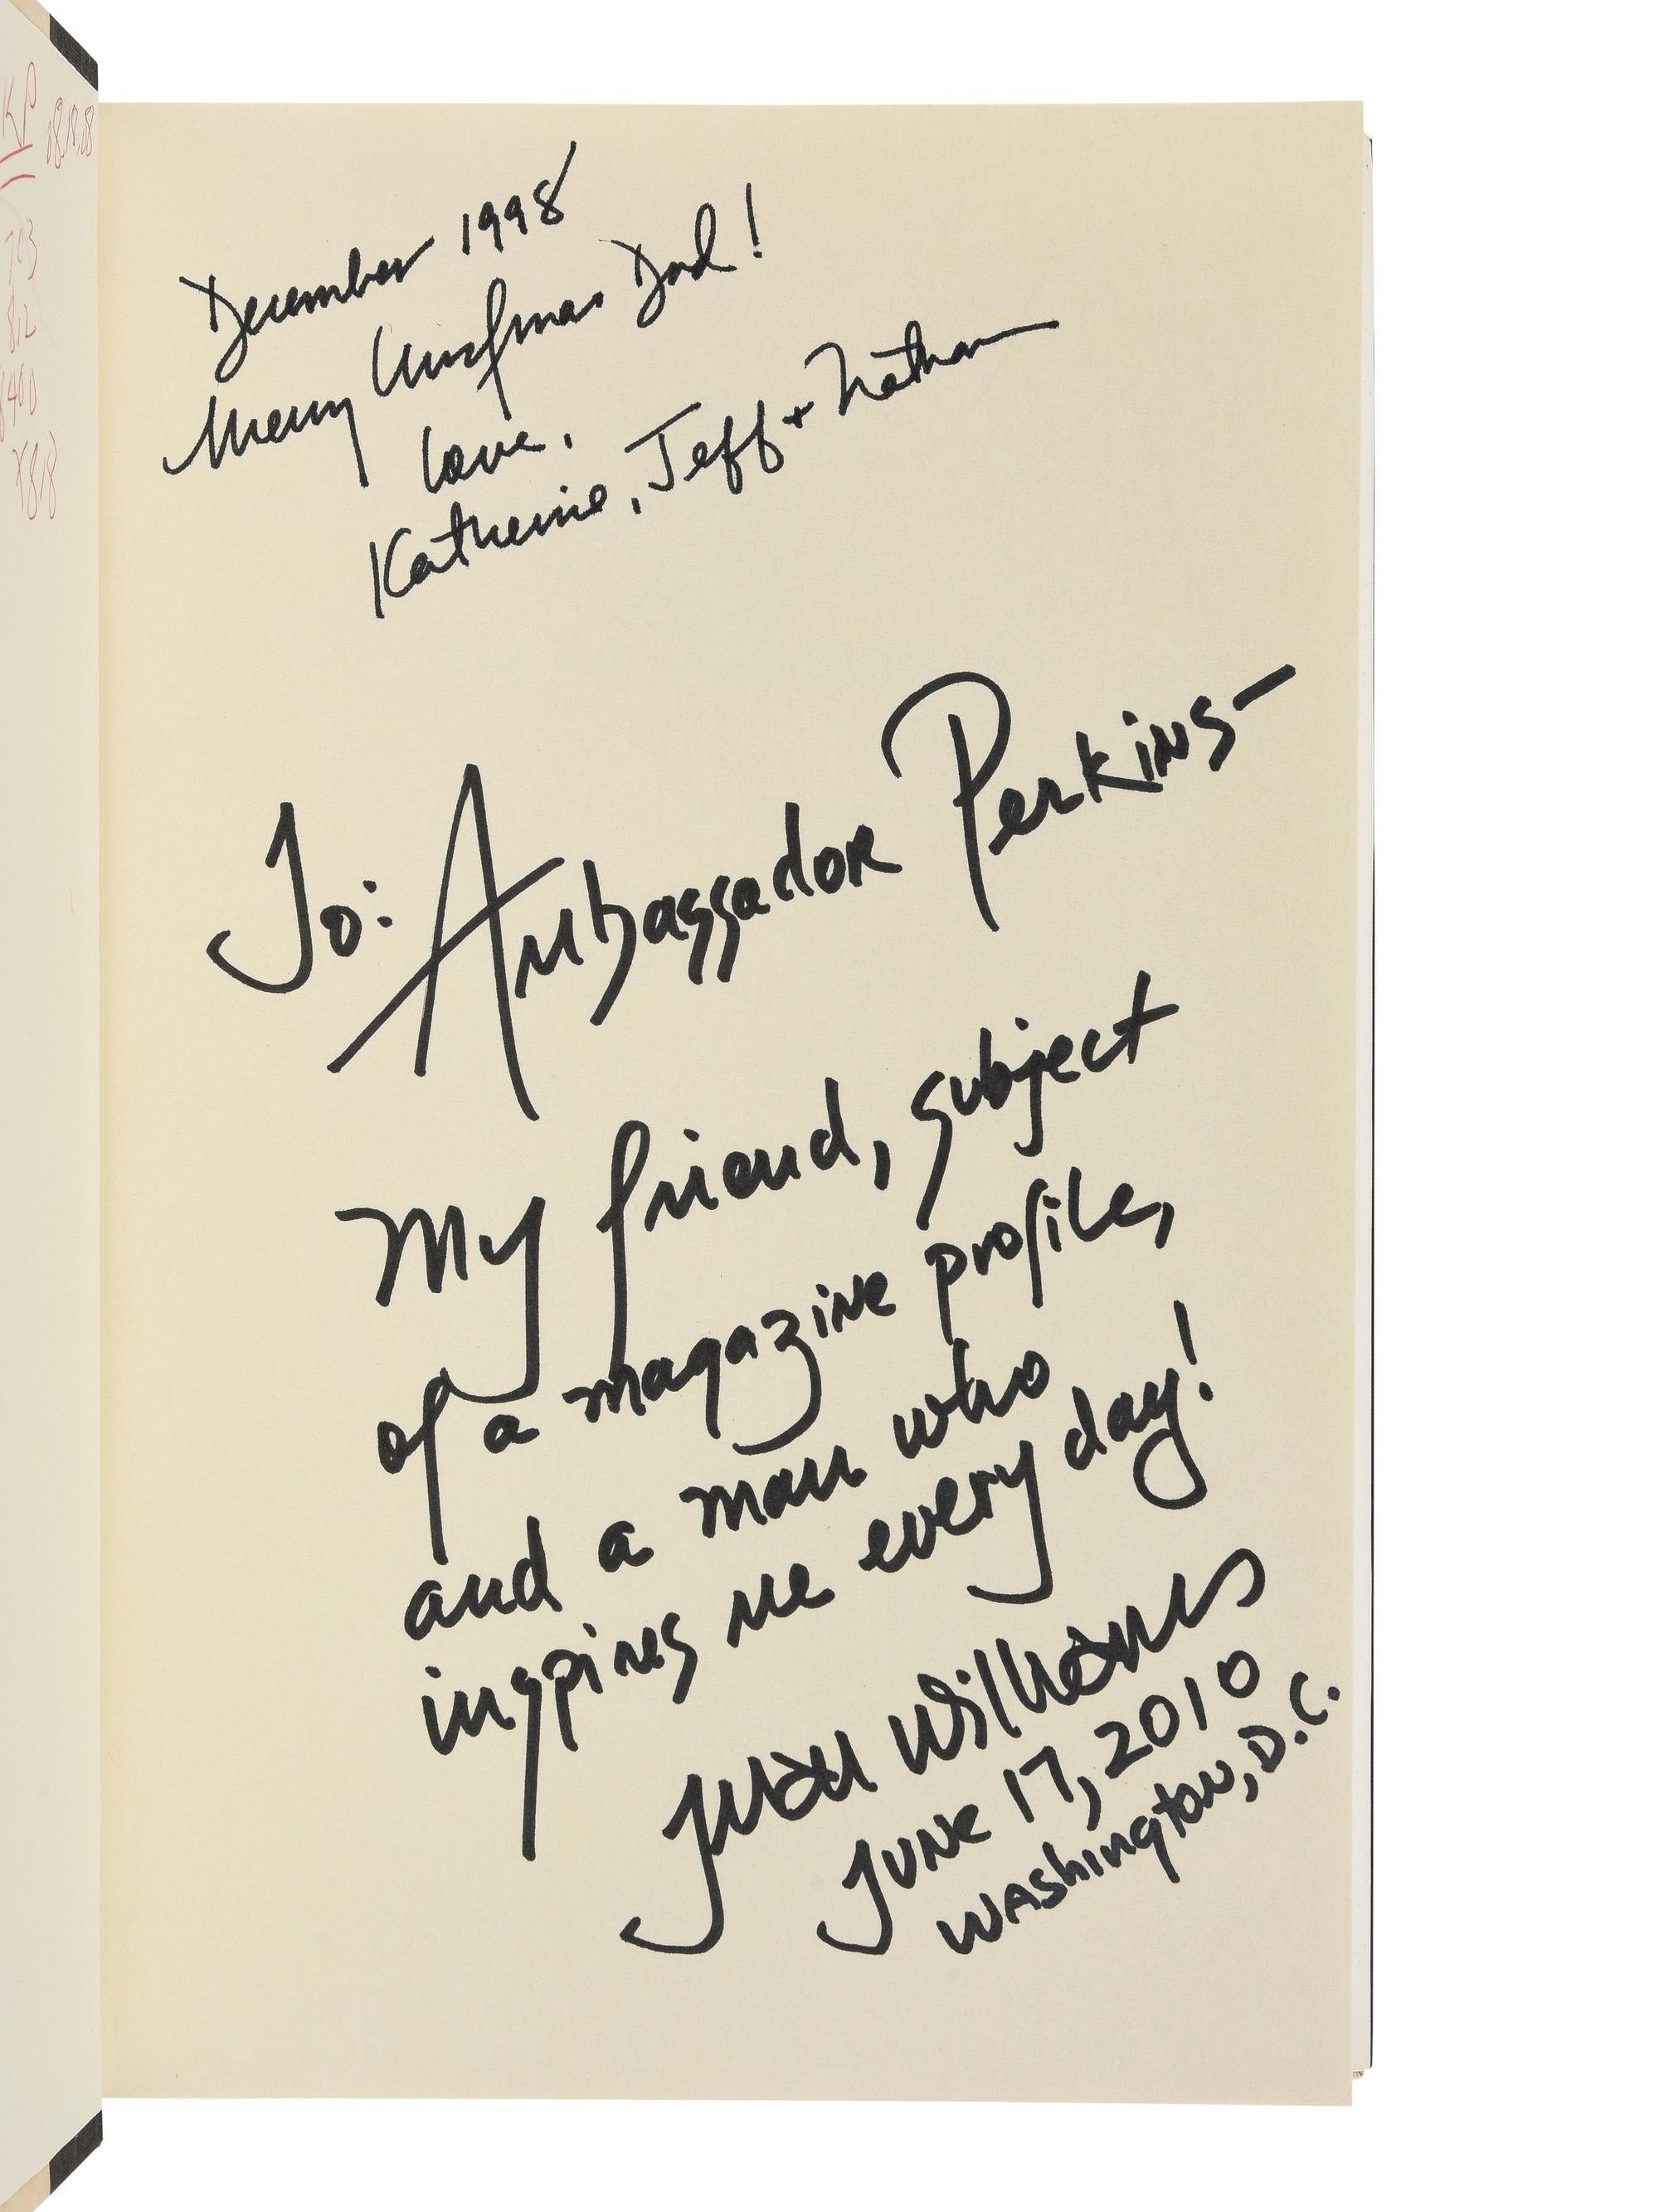 KP
December 1998
Merry Christmas Dad!
Love,
Katherine, Jeff + Nathan
To: Ambassador Perkins-
My friend, subject
of a magazine profile,
and a man who
inspires me every day!
Juan Williams
June 17, 2010
Washington, D.C.